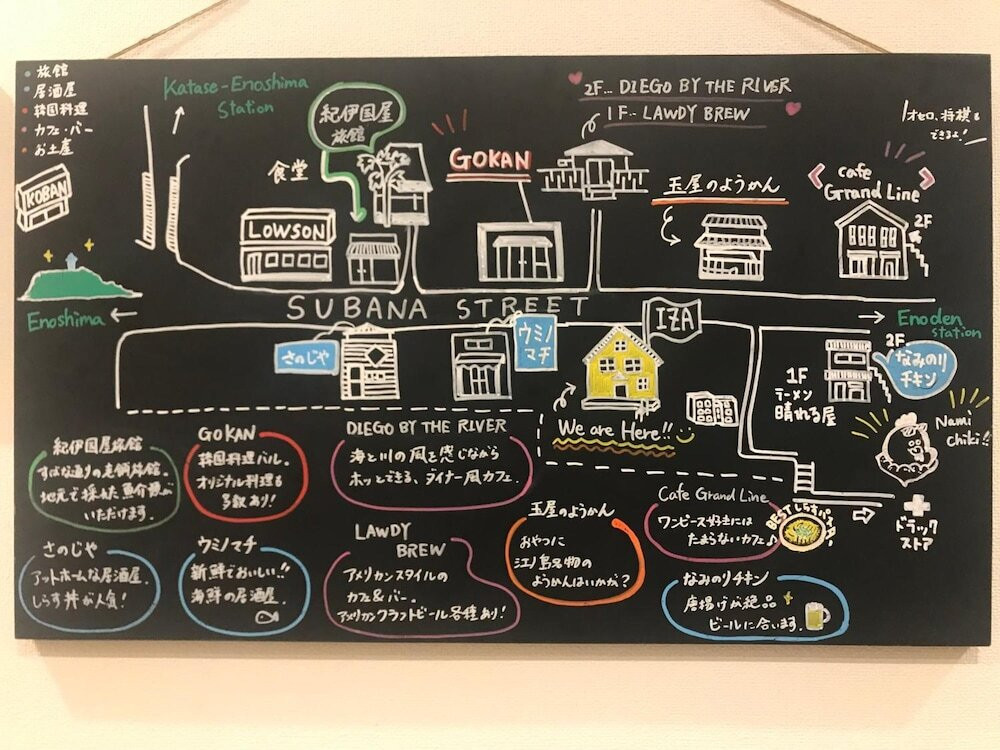 旅館
居酒屋
韓国料理
カフェ・バー
お土産
KOBAN
Katase-Enoshima
Station
紀伊国屋
旅館
食堂
LOWSON
GOKAN
2F... DIEGO BY THE RIVER
1F... LAWDY BREW
玉屋のようかん
オセロ、将棋も
できるよ!
cafe
Grand Line
2F
SUBANA STREET
Enoshima ←
→ Enoden
Station
さのじや
ウミノ
マチ
IZA
We are Here!!
2F
なみのり
チキン
1F
ラーメン
晴れる屋
Nami
chiki!!
ドラック
ストア
紀伊国屋旅館
すばな通りの老舗旅館。
地元で採れた魚介類が
いただけます。
GOKAN
韓国料理バル。
オリジナル料理も
多数あり!
DIEGO BY THE RIVER
海と川の風を感じながら
ホッとできる、ダイナー風カフェ。
さのじや
アットホームな居酒屋。
しらす丼が人気!
ウミノマチ
新鮮でおいしい!!
海鮮の居酒屋。
LAWDY
BREW
アメリカンスタイルの
カフェ&バー。
アメリカンクラフトビール各種あり!
玉屋のようかん
おやつに
江ノ島名物の
ようかんはいかが?
Cafe Grand Line
ワンピース好きには
たまらないカフェ♪
BEST しらすパスタ!
なみのりチキン
唐揚げが絶品
ビールに合います。